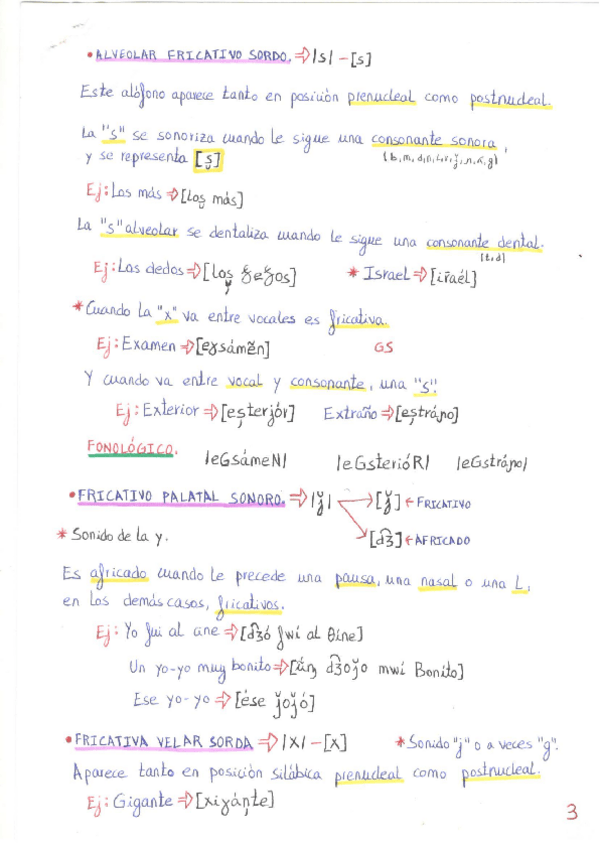 • ALVEOLAR FRICATIVO SORDO. ⇒ |s| – [s]
Este alófono aparece tanto en posición prenucleal como postnucleal.
La "s" se sonoriza cuando le sigue una consonante sonora,
y se representa [s̬]
Ej: Los más ⇒ [los̬ más]
La "s" alveolar se dentaliza cuando le sigue una consonante dental.
[t,d]
Ej: Los dedos ⇒ * Israel ⇒ [ir̄aél]
* Cuando la "x" va entre vocales es fricativa.
Ej: Examen ⇒ [eɣsámẽn] GS
Y cuando va entre vocal y consonante, una "s".
Ej: Exterior ⇒ [es̪terjór] Extraño ⇒ [es̪tráɲo]
FONOLÓGICO. |eGsámeN| |eGsterióR| |eGstráɲo|
• FRICATIVO PALATAL SONORO. ⇒ |ǰ| → [ǰ] ← FRICATIVO
→ [d͡ʒ] ← AFRICADO
* Sonido de la y.
Es africado cuando le precede una pausa, una nasal o una L,
en los demás casos, fricativos.
Ej: Yo fui al cine ⇒ [d͡ʒó fwí al θíne]
Un yo-yo muy bonito ⇒ d͡ʒoǰo mwí Boníto]
Ese yo-yo ⇒ [ése ǰoǰó]
• FRICATIVA VELAR SORDA ⇒ |X| – [X] * Sonido "j" o a veces "g".
Aparece tanto en posición silábica prenucleal como postnucleal.
Ej: Gigante ⇒ [xiɣán̪te]
3